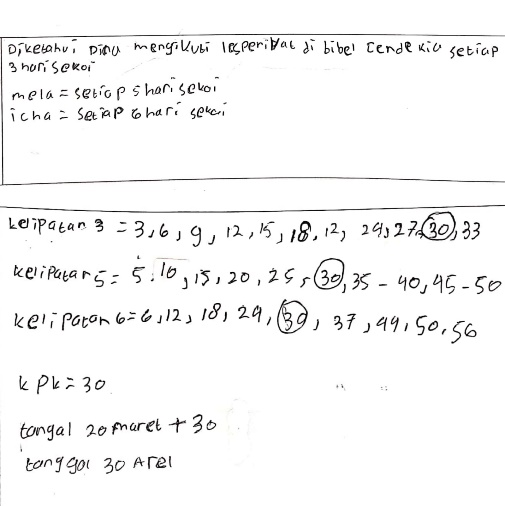 Diketahui Dina mengikuti les perivat di bibel Cendekia setiap
3 hari sekoi
mela = setiap 5 hari sekoi
icha = setiap 6 hari sekai
kelipatan 3 = 3, 6, 9, 12, 15, 18, 12, 24, 27, 30, 33
kelipatan 5 = 5, 10, 15, 20, 25, 30, 35 - 40, 45 - 50
kelipatan 6 = 6, 12, 18, 24, 30, 37, 44, 50, 56
kpk = 30
tangal 20 maret + 30
tanggal 30 Arel